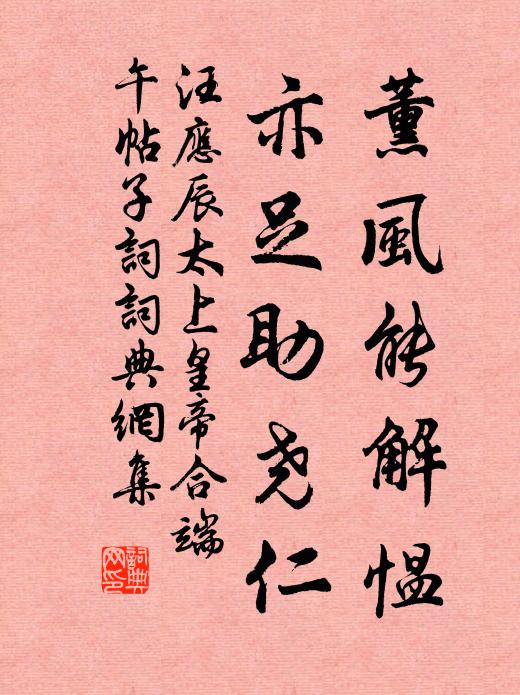 薰風能解愠
亦足助尧仁
汪應辰太上皇帝合端
午帖子詞詞典網集
詞典网印